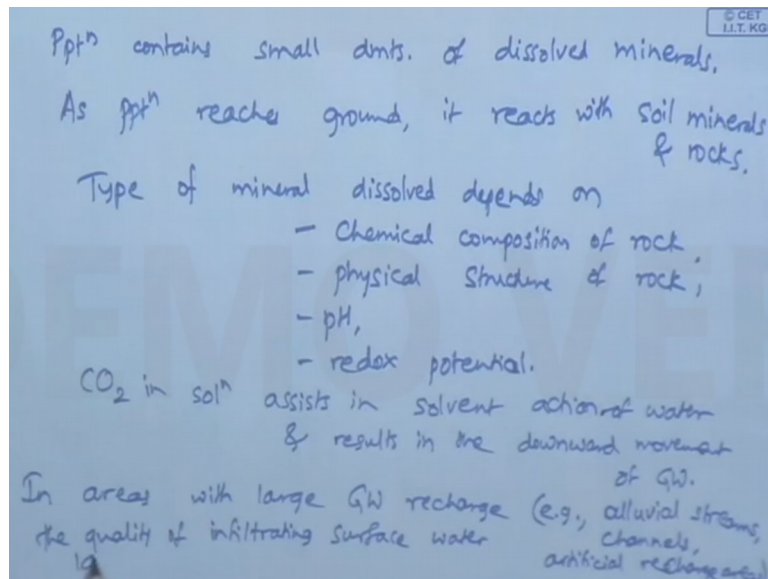 © CET
I.I.T. KG
Pptⁿ contains small amts. of dissolved minerals.
As pptⁿ reaches ground, it reacts with soil minerals
& rocks.
Type of mineral dissolved depends on
- Chemical composition of rock,
- physical structure of rock,
- pH,
- redox potential.
CO₂ in solⁿ assists in solvent action of water
& results in the downward movement
of GW.
In areas with large GW recharge (e.g., alluvial streams,
the quality of infiltrating surface water channels,
artificial recharge areas)